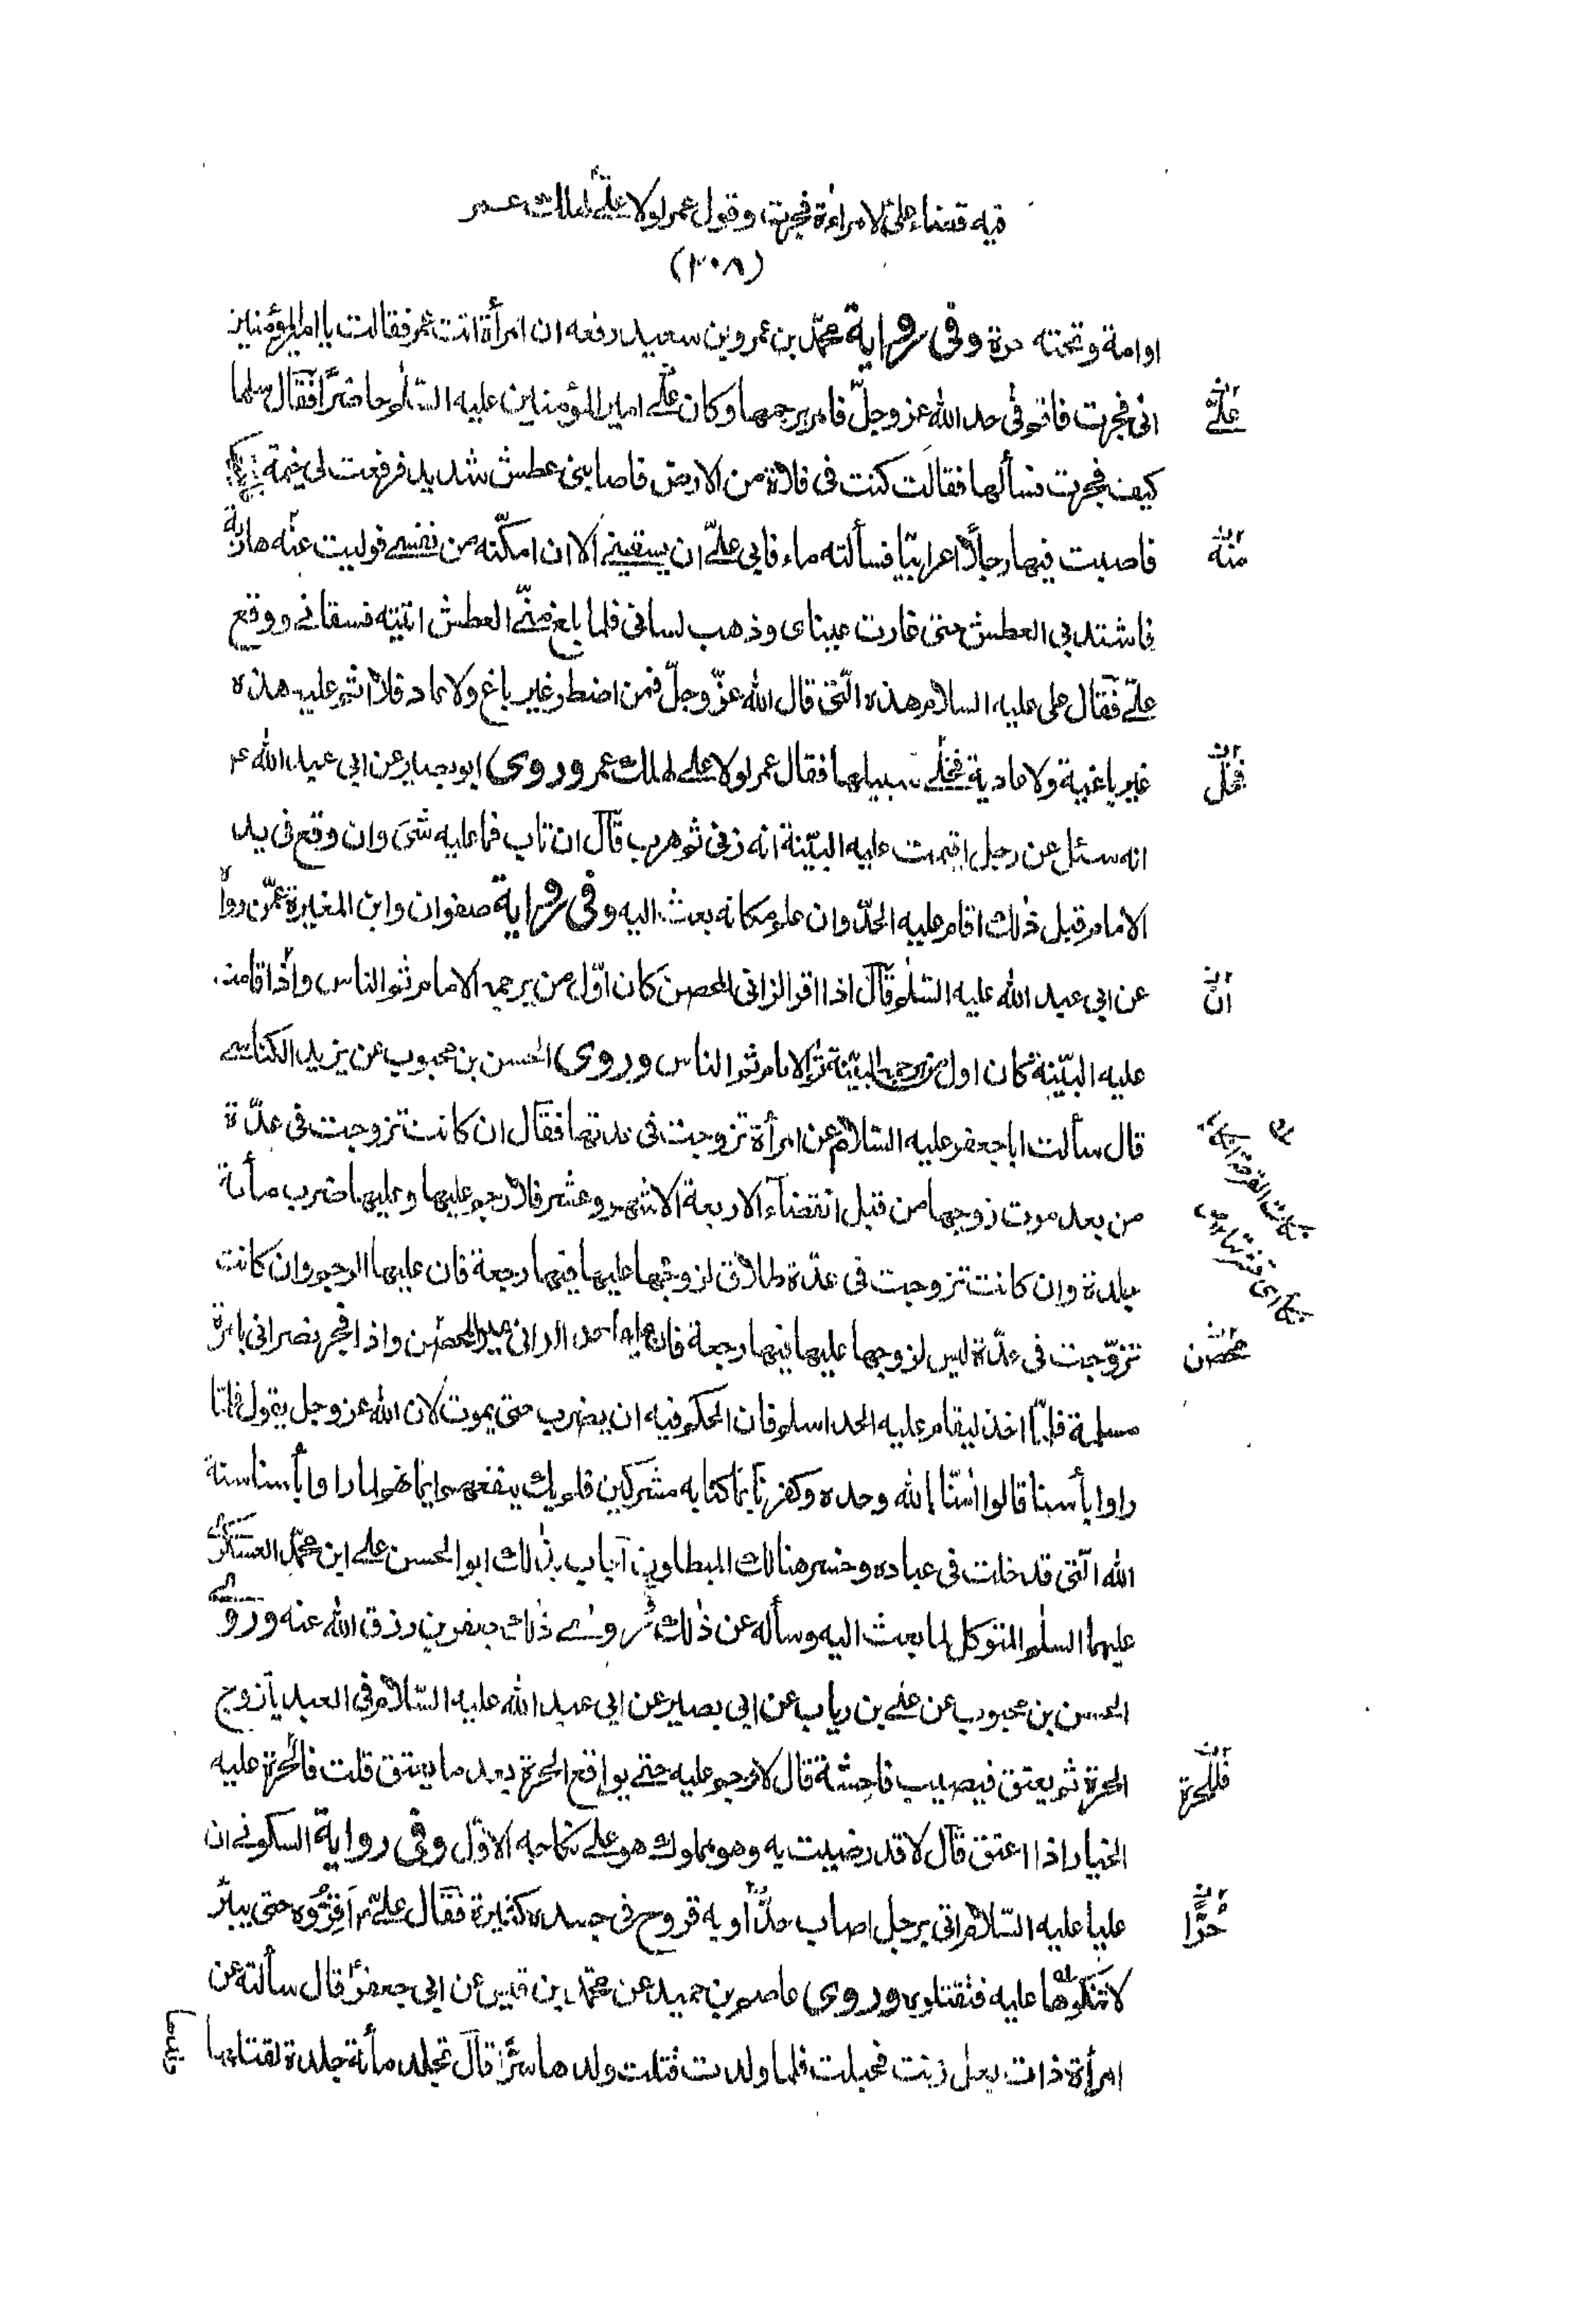 فيه قضاء على لامراءة فجرت وقول عمر لولا على لهلك عمر
(٣٠٨)
او امة وتحته حرة وفى رواية محمّد بن عمرو بن سعيد رفعه ان امرأة اتت عمر فقالت يا امير المؤمنين
انى فجرت فاقم فىّ حد الله عز وجلّ فامر برجمها وكان علىّ امير المؤمنين عليه السّلم حاضرًا فقال سلها
علىّ
كيف فجرت فسألها فقالت كنت فى فلاة من الارض فاصابنى عطش شديد فرفعت لى خيمة
فاصبت فيها رجلًا اعرابيّا فسألته ماء فابى علىّ ان يسقينى الا ان امكّنه من نفسى فوليت عنه هاربة
منه
فاشتد بى العطش حتى غارت عيناى وذهب لسانى فلما بلغ منّى العطش اتيته فسقانى ووقع
علىّ فقال على عليه السلام هذه الّتى قال الله عزّ وجلّ فمن اضطر غير باغ ولا عاد فلا اثم عليه هذه
غير باغية ولا عادية فخلى سبيلها فقال عمر لولا على لهلك عمر وروى ابو بصير عن ابى عبد الله ع
فخلّ
انه سئل عن رجل اقيمت عليه البيّنة انه زنى ثم هرب قال ان تاب فما عليه شئ وان وقع فى يد
الامام قبل ذلك اقام عليه الحدّ وان علم مكانه بعث اليه وفى رواية صفوان وابن المغيرة عمّن رواه
عن ابى عبد الله عليه السّلم قال اذا اقر الزانى المحصن كان اوّل من يرجمه الامام ثم الناس واذا قامت
انّ
عليه البيّنة كان اول من يرجمه البيّنة ثم الامام ثم الناس وروى الحسن بن محبوب عن يزيد الكناسى
قال سألت ابا جعفر عليه السّلام عن امرأة تزوجت فى عدتها فقال ان كانت تزوجت فى عدّة
من بعد موت زوجها من قبل انقضاء الاربعة الاشهر وعشر فلا رجم عليها وعليها ضرب مأة
جلدة وان كانت تزوجت فى عدّة طلاق لزوجها عليها فيها رجعة فان عليها الرجم وان كانت
تزوّجت فى عدّة ليس لزوجها عليها فيها رجعة فان عليها حد الزانى غير المحصن واذا فجر نصرانى بامرأة
محصن
مسلمة فلمّا اخذ ليقام عليه الحد اسلم فان الحكم فيه ان يضرب حتى يموت لان الله عز وجل يقول فلمّا
راوا بأسنا قالوا امنّا بالله وحده وكفرنا بما كنا به مشركين فلم يك ينفعهم ايمانهم لما راوا بأسنا سنة
الله الّتى قد خلت فى عباده وخسر هنالك المبطلون اجاب بذلك ابو الحسن على ابن محمّد العسكرى
عليهما السلم المتوكل لما بعث اليه وسأله عن ذلك روى ذلك جعفر بن رزق الله عنه وروى
الحسن بن محبوب عن على بن رياب عن ابى بصير عن ابى عبد الله عليه السّلام فى العبد يتزوج
الحرة ثم يعتق فيصيب فاحشة قال لا رجم عليه حتى يواقع الحرة بعد ما يعتق قلت فالحرة عليه
فللحرة
الخيار اذا اعتق قال لا قد رضيت به وهو مملوك هو على نكاحه الاوّل وفى رواية السكونى ان
عليا عليه السّلام اتى برجل اصاب حدًّا وبه قروح فى جسده كثيرة فقال علىّ ع اقرّوه حتى يبرأ
حرًّا
لا تنكؤها عليه فتقتلوه وروى عاصم بن حميد عن محمّد بن قيس عن ابى جعفر ع قال سألته عن
امرأة ذات بعل زنت فحبلت فلما ولدت قتلت ولدها سرًّا قال تجلد مأة جلدة لقتلها
ولدها